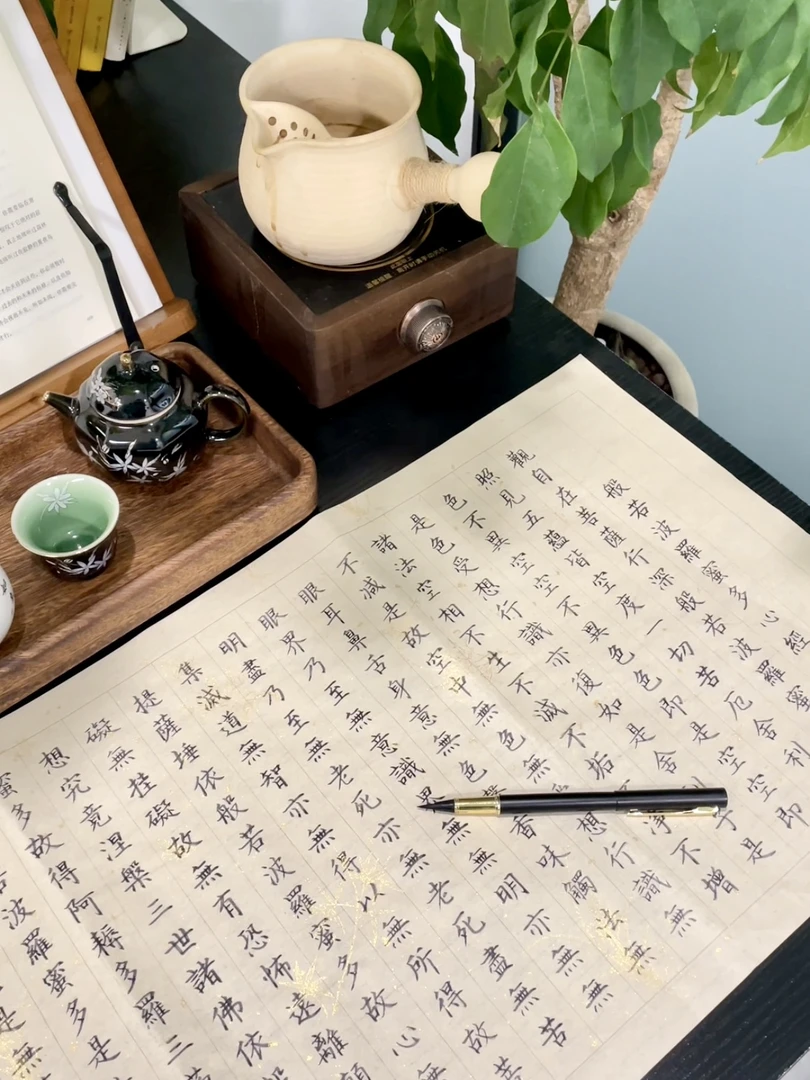 般若波羅蜜多心經
觀自在菩薩行深般若波羅蜜
照見五蘊皆空度一切苦厄舍利
色不異空空不異色色即是空空即
是色受想行識亦復如是舍利子是
諸法空相不生不滅不垢淨不增
不減是故空中無色無想行識無
眼耳鼻舌身意無色香味觸法無
眼界乃至無意識界無無明亦無無
明盡乃至無老死亦無老死盡無苦
集滅道無智亦無得以無所得故菩
提薩埵依般若波羅蜜多故心無
礙無挂礙故無有恐怖遠離顛
想究竟涅槃三世諸佛依般
蜜多故得阿耨多羅三
波羅蜜多是
是無